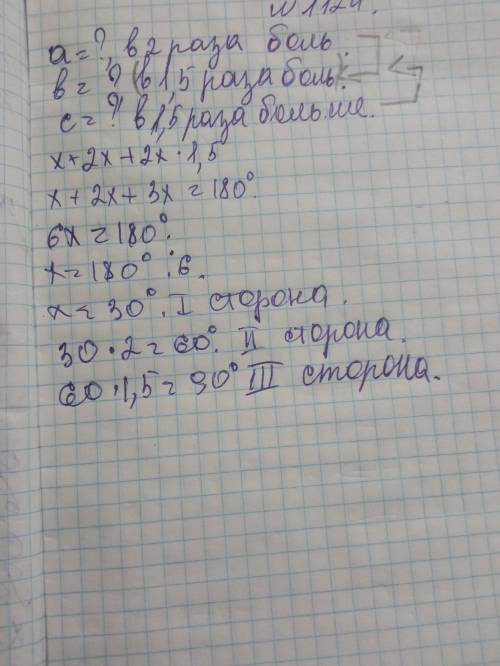 №1124.
a = ?, в 2 раза боль.
в = ? (в 1,5 раза боль.)
с = ? в 1,5 раза больше.
x + 2x + 2x · 1,5
x + 2x + 3x = 180°.
6x = 180°.
x = 180° : 6.
x = 30°. I сторона.
30 · 2 = 60°. II сторона.
60 · 1,5 = 90° III сторона.